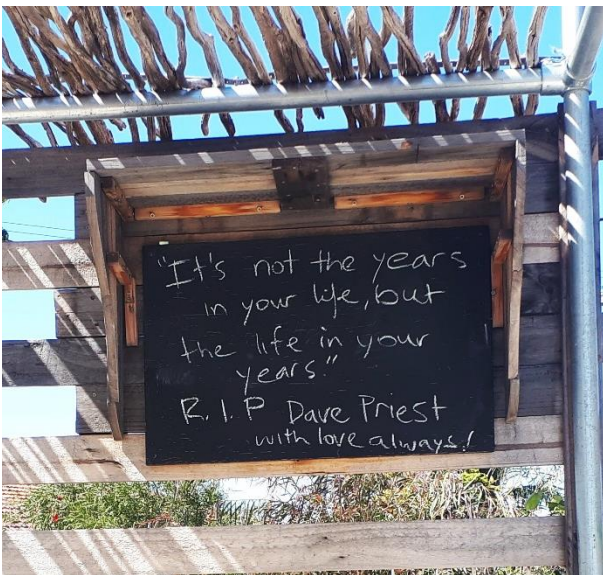 "It's not the years
in your life, but
the life in your
years."
R.I.P Dave Priest
with love always!